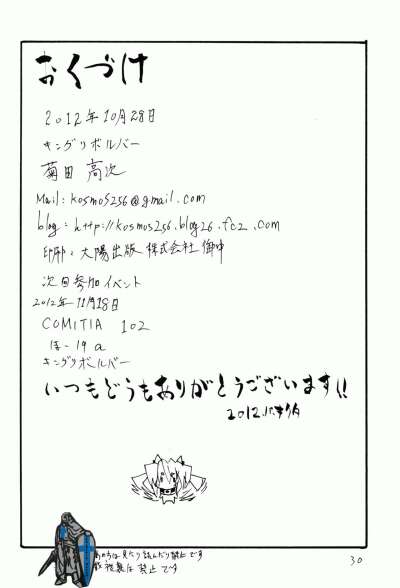 おくづけ
2012年10月28日
キングリボルバー
菊田 高次
Mail: kosmos256@gmail.com
blog: http://kosmos256.blog26.fc2.com
印刷: 大陽出版 株式会社 御中
次回参加イベント
2012年11月18日
COMITIA 102
ほ-19a
キングリボルバー
いつもどうもありがとうございます!!
2012.
は見たり読んだり禁止です
複製は禁止です
30